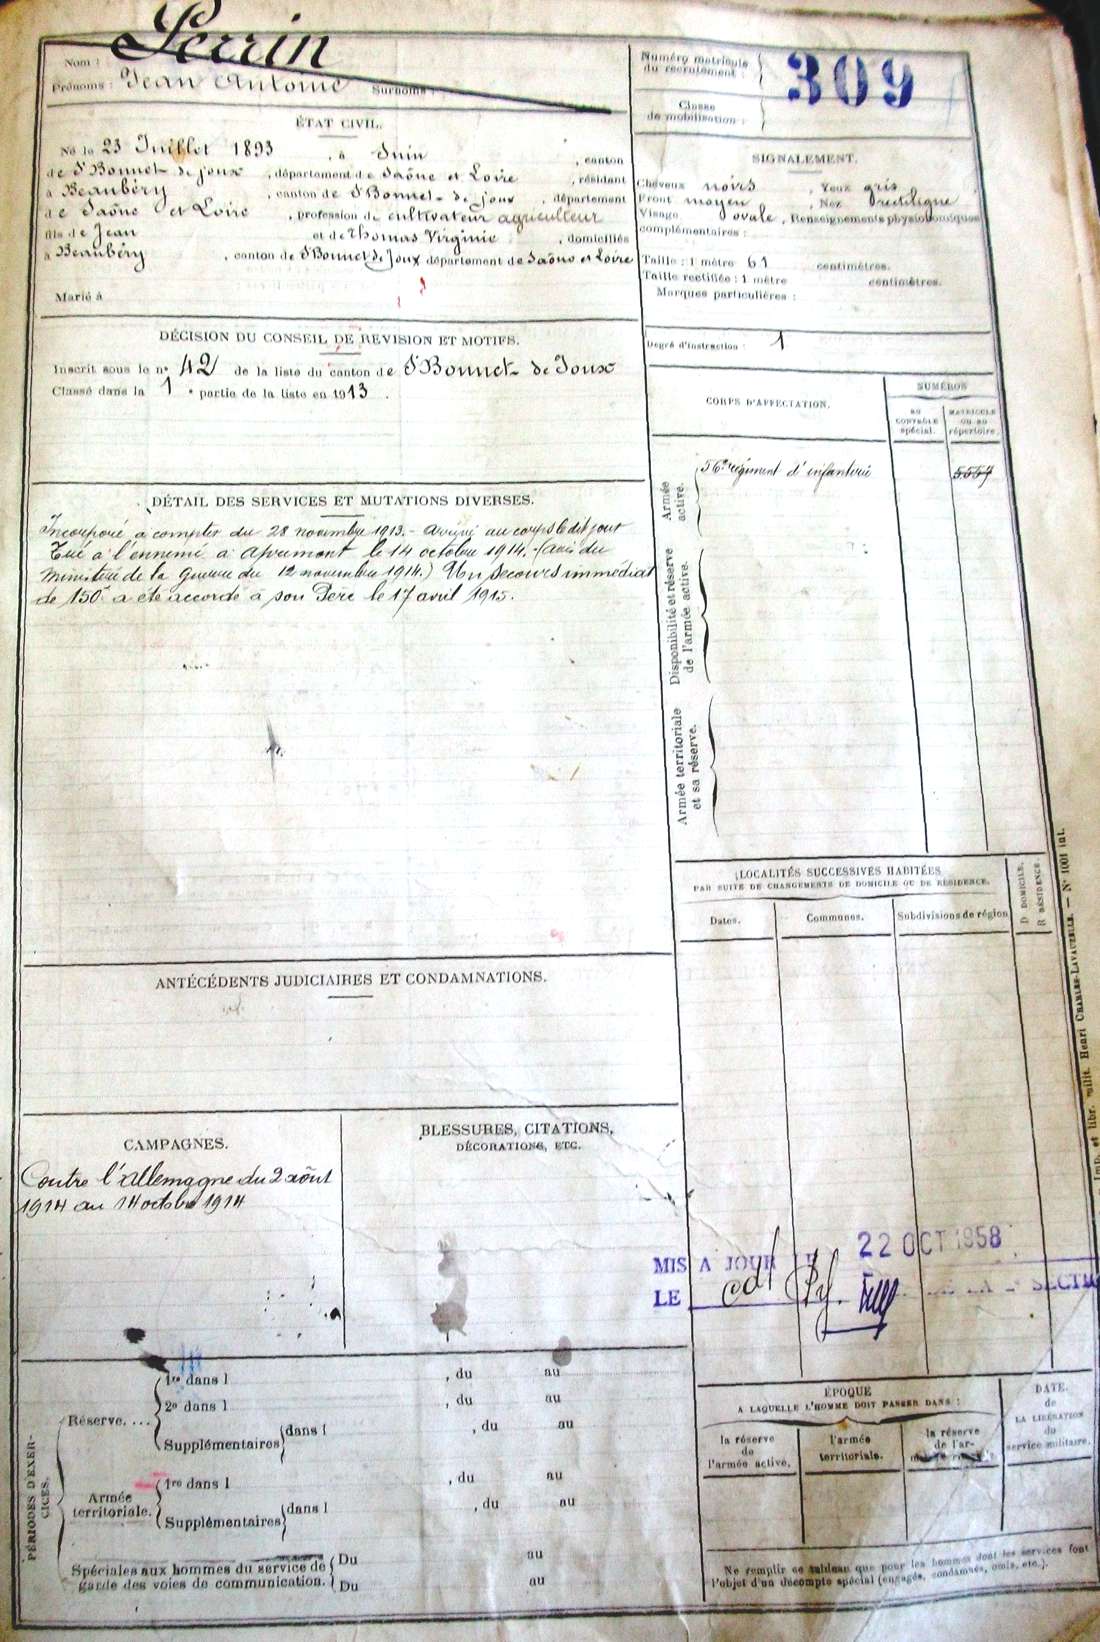 Nom : Perrin
Prénoms : Jean Antoine Surnoms :
Numéro matricule
du recrutement :
309
Classe
de mobilisation :
ÉTAT CIVIL.
Né le 23 Juillet 1893, à Suin, canton
de St Bonnet de joux, département de Saône et Loire, résidant
à Beaubéry, canton de St Bonnet de joux, département
de Saône et Loire, profession de cultivateur agriculteur
fils de Jean et de Thomas Virginie, domiciliés
à Beaubéry, canton de St Bonnet de Joux département de Saône et Loire
Marié à
SIGNALEMENT.
Cheveux noirs, Yeux gris
Front moyen, Nez rectiligne
Visage ovale, Renseignements physionomiques
complémentaires :
Taille : 1 mètre 61 centimètres.
Taille rectifiée : 1 mètre centimètres.
Marques particulières :
Degré d'instruction : 1
DÉCISION DU CONSEIL DE REVISION ET MOTIFS.
Inscrit sous le n° 42 de la liste du canton de St Bonnet de Joux
Classé dans la 1e partie de la liste en 1913.
CORPS D'AFFECTATION.
NUMÉROS
AU
CONTRÔLE
spécial.
MATRICULE
OU AU
répertoire.
Armée
active.
56e régiment d'infanterie
5557
Disponibilité et réserve
de l'armée active.
Armée territoriale
et sa réserve.
DÉTAIL DES SERVICES ET MUTATIONS DIVERSES.
Incorporé à compter du 28 novembre 1913.- arrivé au corps le dit jour
Tué à l'ennemi à Apremont le 14 octobre 1914.- (avis du
ministère de la guerre du 12 novembre 1914.) Un secours immédiat
de 150f a été accordé à son Père le 17 avril 1915.
LOCALITÉS SUCCESSIVES HABITÉES
PAR SUITE DE CHANGEMENTS DE DOMICILE OU DE RÉSIDENCE.
Dates.
Communes.
Subdivisions de région
D DOMICILE.
R RÉSIDENCE.
ANTÉCÉDENTS JUDICIAIRES ET CONDAMNATIONS.
CAMPAGNES.
Contre l'Allemagne du 2 août
1914 au 14 octobre 1914
BLESSURES, CITATIONS,
DÉCORATIONS, ETC.
MIS A JOUR LE 22 OCT 1958
LE DE LA SECTI
PÉRIODES D'EXER-
CICES.
Réserve....
1re dans l , du au
2e dans l , du au
Supplémentaires dans l , du au
Armée
territoriale.
1re dans l , du au
Supplémentaires dans l , du au
Spéciales aux hommes du service de
garde des voies de communication.
Du au
Du au
ÉPOQUE
A LAQUELLE L'HOMME DOIT PASSER DANS :
la réserve
de
l'armée active.
l'armée
territoriale.
la réserve
de l'ar-
DATE.
de
LA LIBÉRATION
du
service militaire.
Ne remplir ce tableau que pour les hommes dont les services font
l'objet d'un décompte spécial (engagés, condamnés, omis, etc.).
Imp. et libr. milit. Henri CHARLES-LAVAUZELLE. — N° 1001 int.